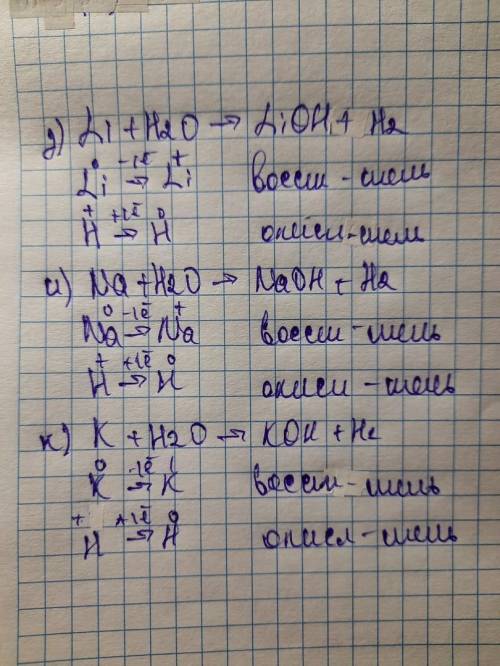 д) Li + H2O → LiOH + H2
Li⁰ -1ē → Li⁺ восст-тель
H⁺ +1ē → H⁰ окисл-тель
и) Na + H2O → NaOH + H2
Na⁰ -1ē → Na⁺ восст-тель
H⁺ +1ē → H⁰ окисл-тель
к) K + H2O → KOH + H2
K⁰ -1ē → K восст-тель
H⁺ +1ē → H⁰ окисл-тель